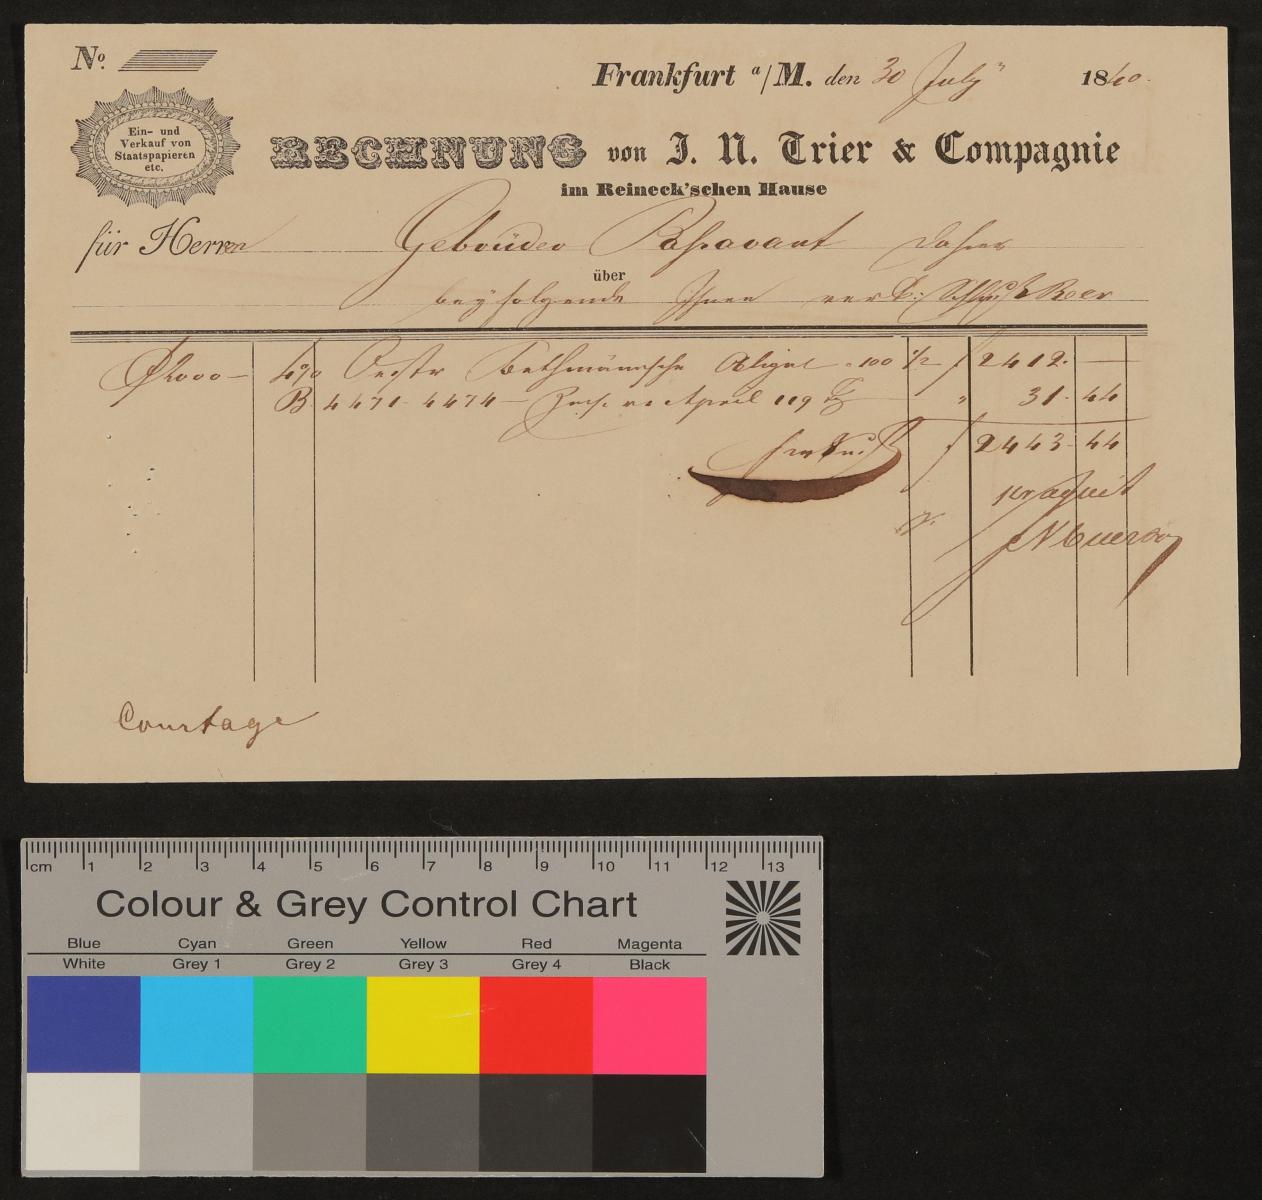 No.
Frankfurt a/M. den 30 July 1840.
Ein- und
Verkauf von
Staatspapieren
etc.
RECHNUNG von J. N. Trier & Compagnie
im Reineck'schen Hause
für Herren Gebrüder Passavant dahier
über
beyfolgende Ihnen
2000 — 4% Oestr Bethmännische Obligat 100 1/2 f 2412. —
B. 4471-4474 — Zins. April 119 " 31. 44
f 2443. 44
Courtage
cm 1 2 3 4 5 6 7 8 9 10 11 12 13
Colour & Grey Control Chart
Blue Cyan Green Yellow Red Magenta
White Grey 1 Grey 2 Grey 3 Grey 4 Black